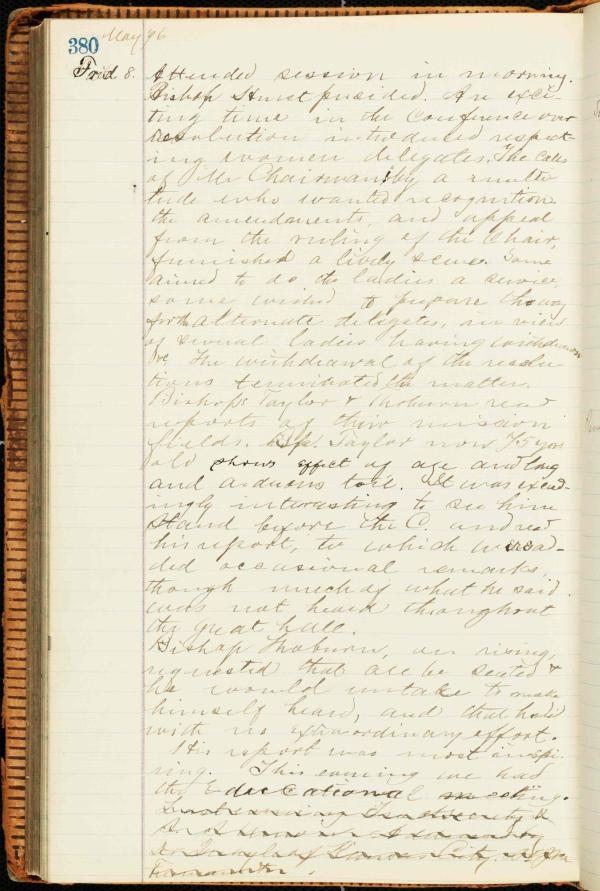 380 May 96
Frid 8. Attended session in morning.
Bishop Hurst presided. An exci-
ting time in the Conference over
resolution introduced respect-
ing women delegates. The calls
of Mr Chairman! by a multi
tude who wanted recognition
the amendments, and appeal
from the ruling of the Chair,
furnished a lively scene. Some
aimed to do the ladies a service,
some wished to prepare the way
for the alternate delegates, in view
of several ladies having withdrawn
&c The withdrawal of the resolu
tions terminated the matter.
Bishops Taylor & Thoburn read
reports of their mission
fields. Bp. Taylor now 75 yrs
old shows effect of age and long
and arduous toil. It was exceed-
ingly interesting to see him
stand before the C. and read
his report, to which were ad-
ded occasional remarks,
though much of what he said
was not heard throughout
the great hall.
Bishop Thoburn, on rising,
requested that all be seated &
he would undertake to make
himself heard, and that he did
with no extraordinary effort.
His report was most inspi-
ring. This evening we had
the Educational meeting.